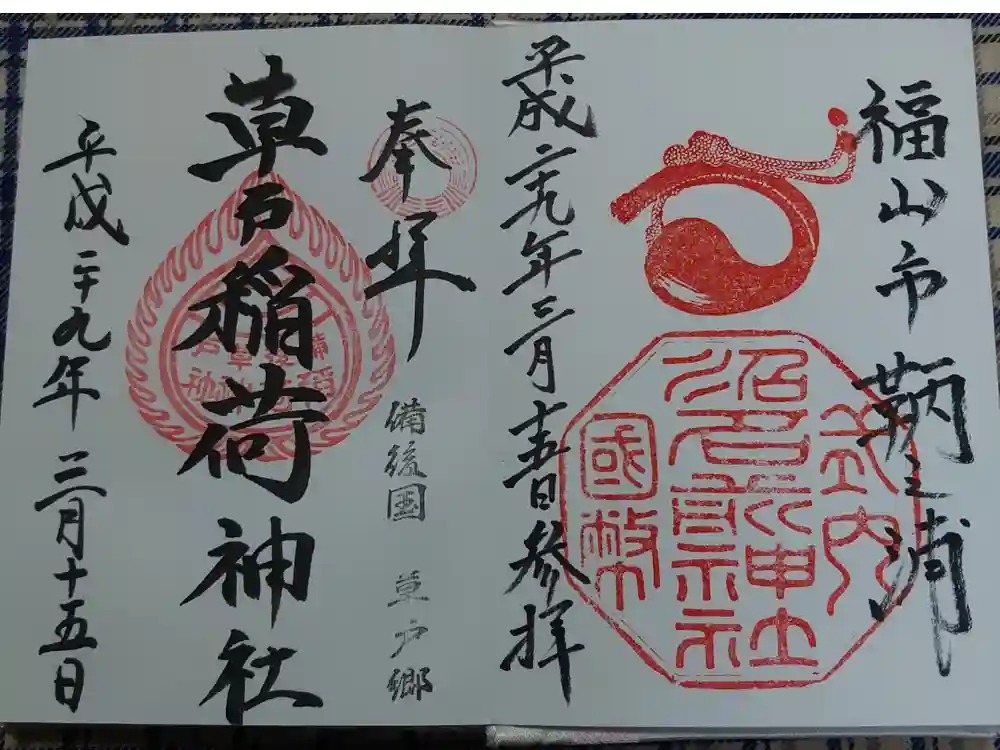 福山市 鞆之浦
式内
沼名前神社
國幣
平成二十九年三月十五日参拝
奉拝
備後国 草戸郷
草戸稲荷神社
平成二十九年三月十五日